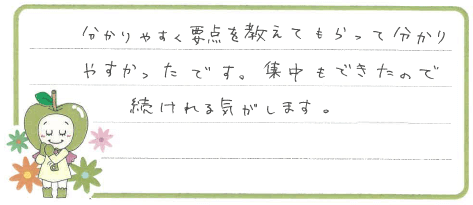 分かりやすく要点を教えてもらって分かり
やすかったです。集中もできたので
続けれる気がします。